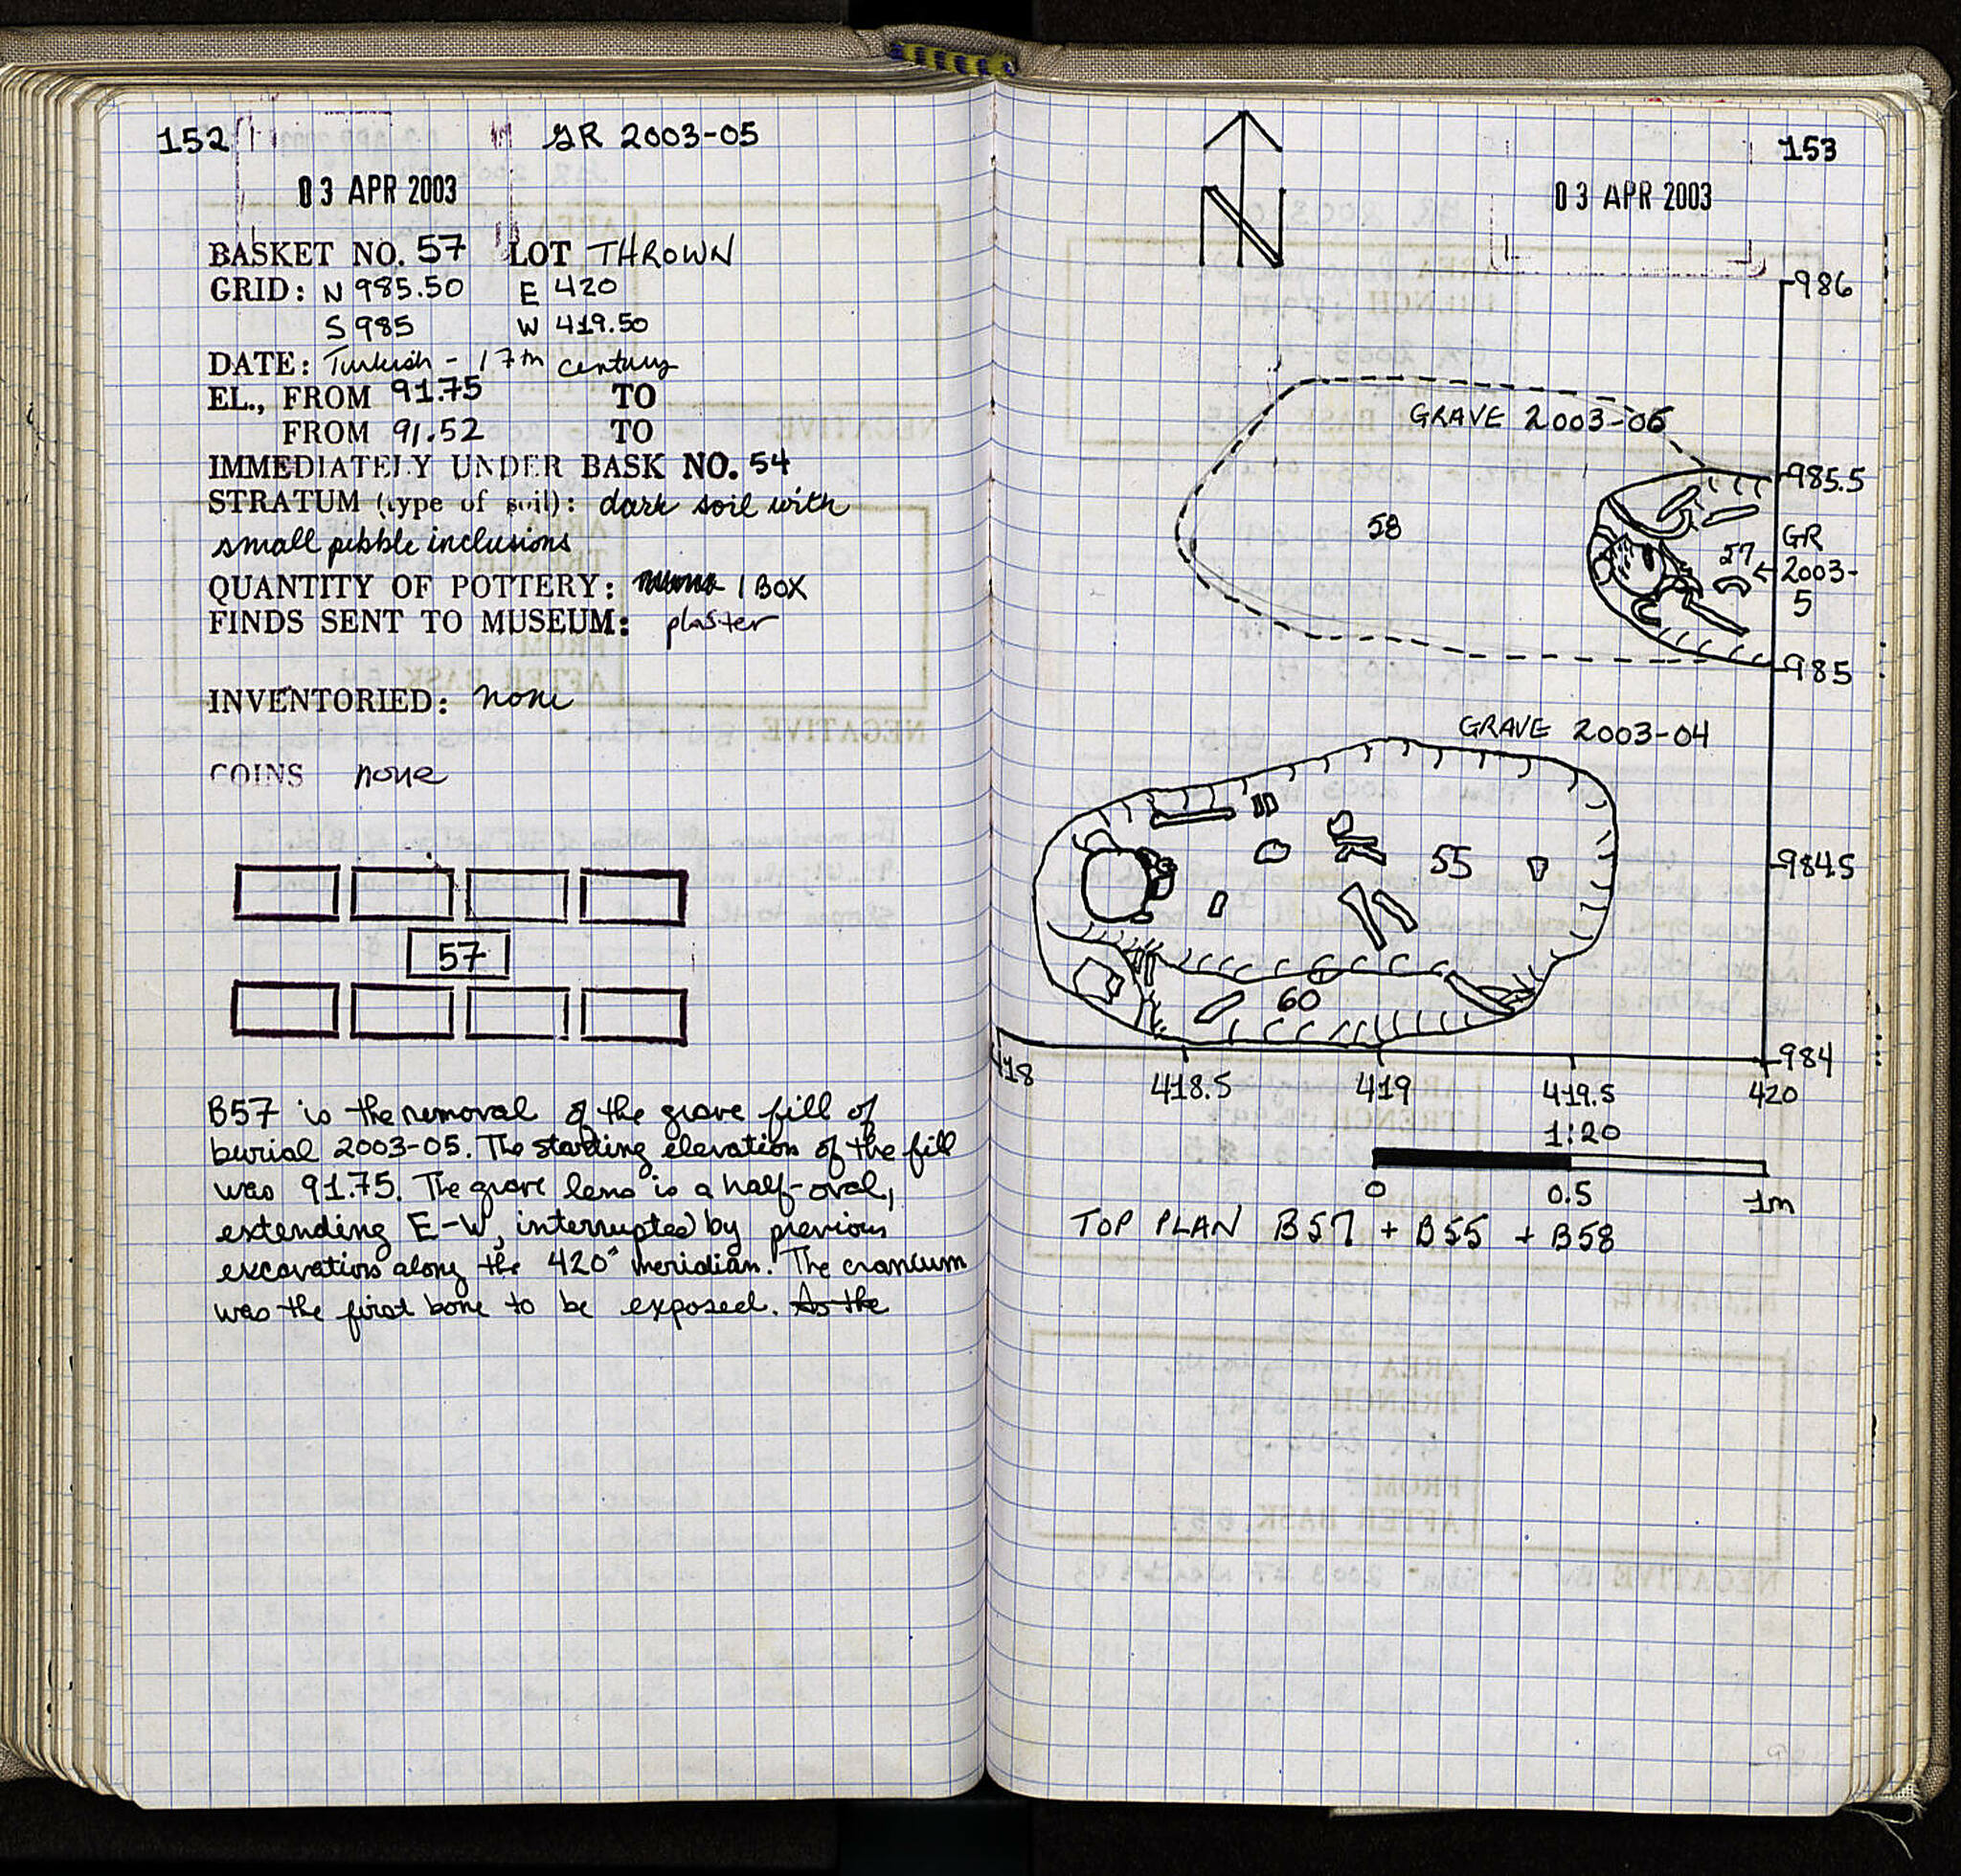 152 GR 2003-05
03 APR 2003
BASKET NO. 57 LOT THROWN
GRID: N 985.50 E 420
S 985 W 419.50
DATE: Turkish - 17th century
EL., FROM 91.75 TO
FROM 91.52 TO
IMMEDIATELY UNDER BASK NO. 54
STRATUM (type of soil): dark soil with
small pebble inclusions
QUANTITY OF POTTERY: 1 BOX
FINDS SENT TO MUSEUM: plaster
INVENTORIED: none
COINS none
57
B57 is the removal of the grave fill of
burial 2003-05. The starting elevation of the fill
was 91.75. The grave lens is a half-oval,
extending E-W, interrupted by previous
excavation along the 420° meridian. The cranium
was the first bone to be exposed. As the
153
03 APR 2003
N
986
GRAVE 2003-06
985.5
58
57
GR
2003-
5
985
GRAVE 2003-04
55
984.5
60
984
418 418.5 419 419.5 420
1:20
0 0.5 1m
TOP PLAN B57 + B55 + B58